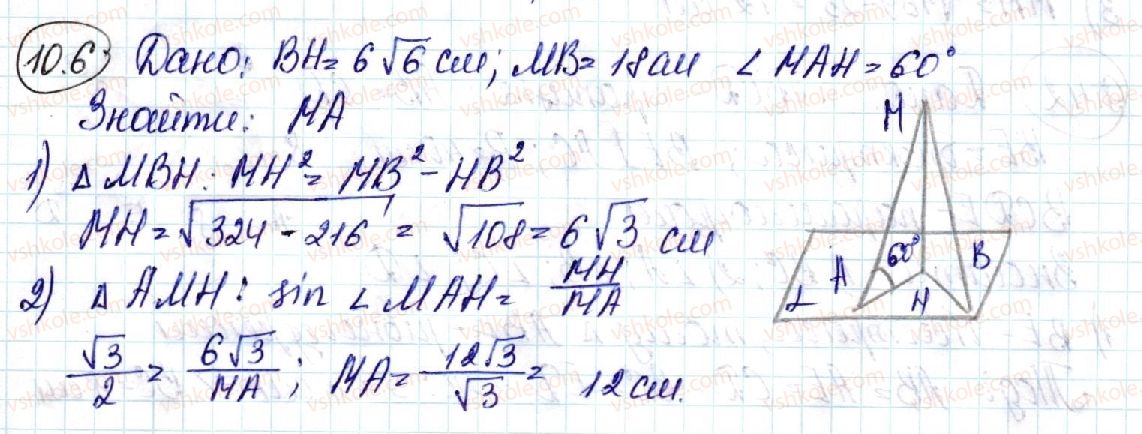 10.6 Дано: BH = 6√6 см; MB = 18 см ∠MAH = 60°
Знайти: MA
1) △MBH: MH² = MB² - HB²
MH = √324 - 216 = √108 = 6√3 см
2) △AMH: sin ∠MAH = MH/MA
√3/2 = 6√3/MA; MA = 12√3/√3 = 12 см.
M
60°
A
B
H
α
vshkole.com